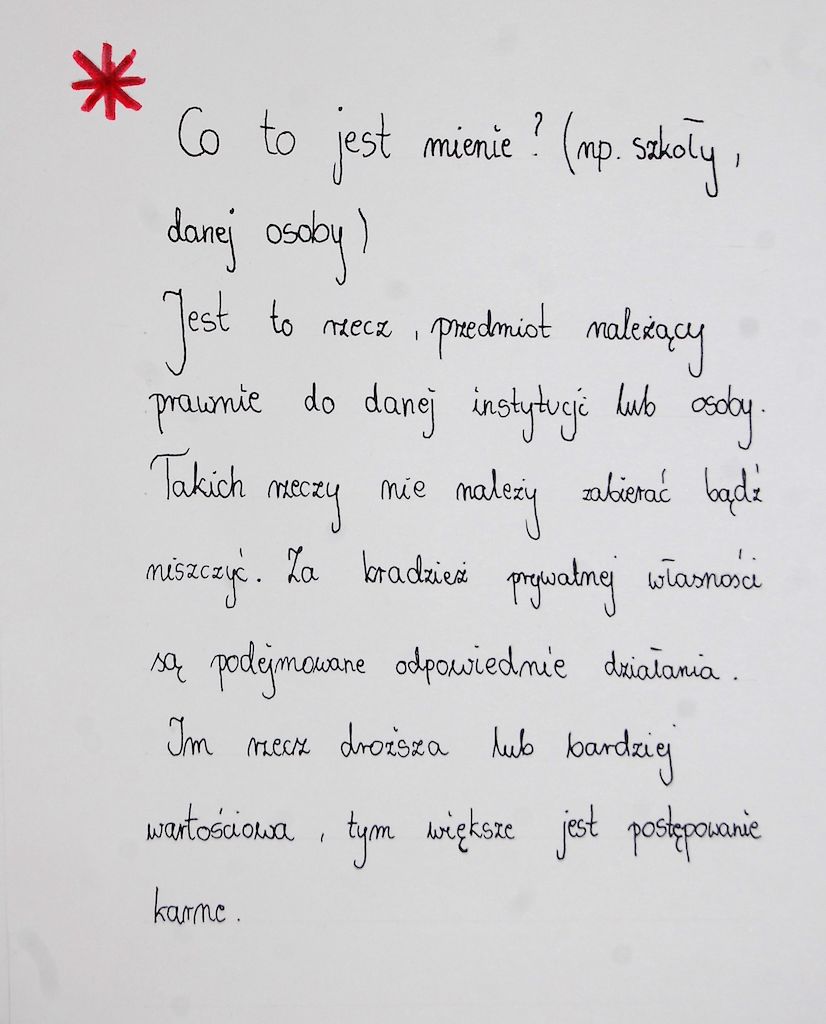 Co to jest mienie? (np. szkoły,
danej osoby)
Jest to rzecz, przedmiot należący
prawnie do danej instytucji lub osoby.
Takich rzeczy nie należy zabierać bądź
niszczyć. Za kradzież prywatnej własności
są podejmowane odpowiednie działania.
Im rzecz droższa lub bardziej
wartościowa, tym większe jest postępowanie
karne.